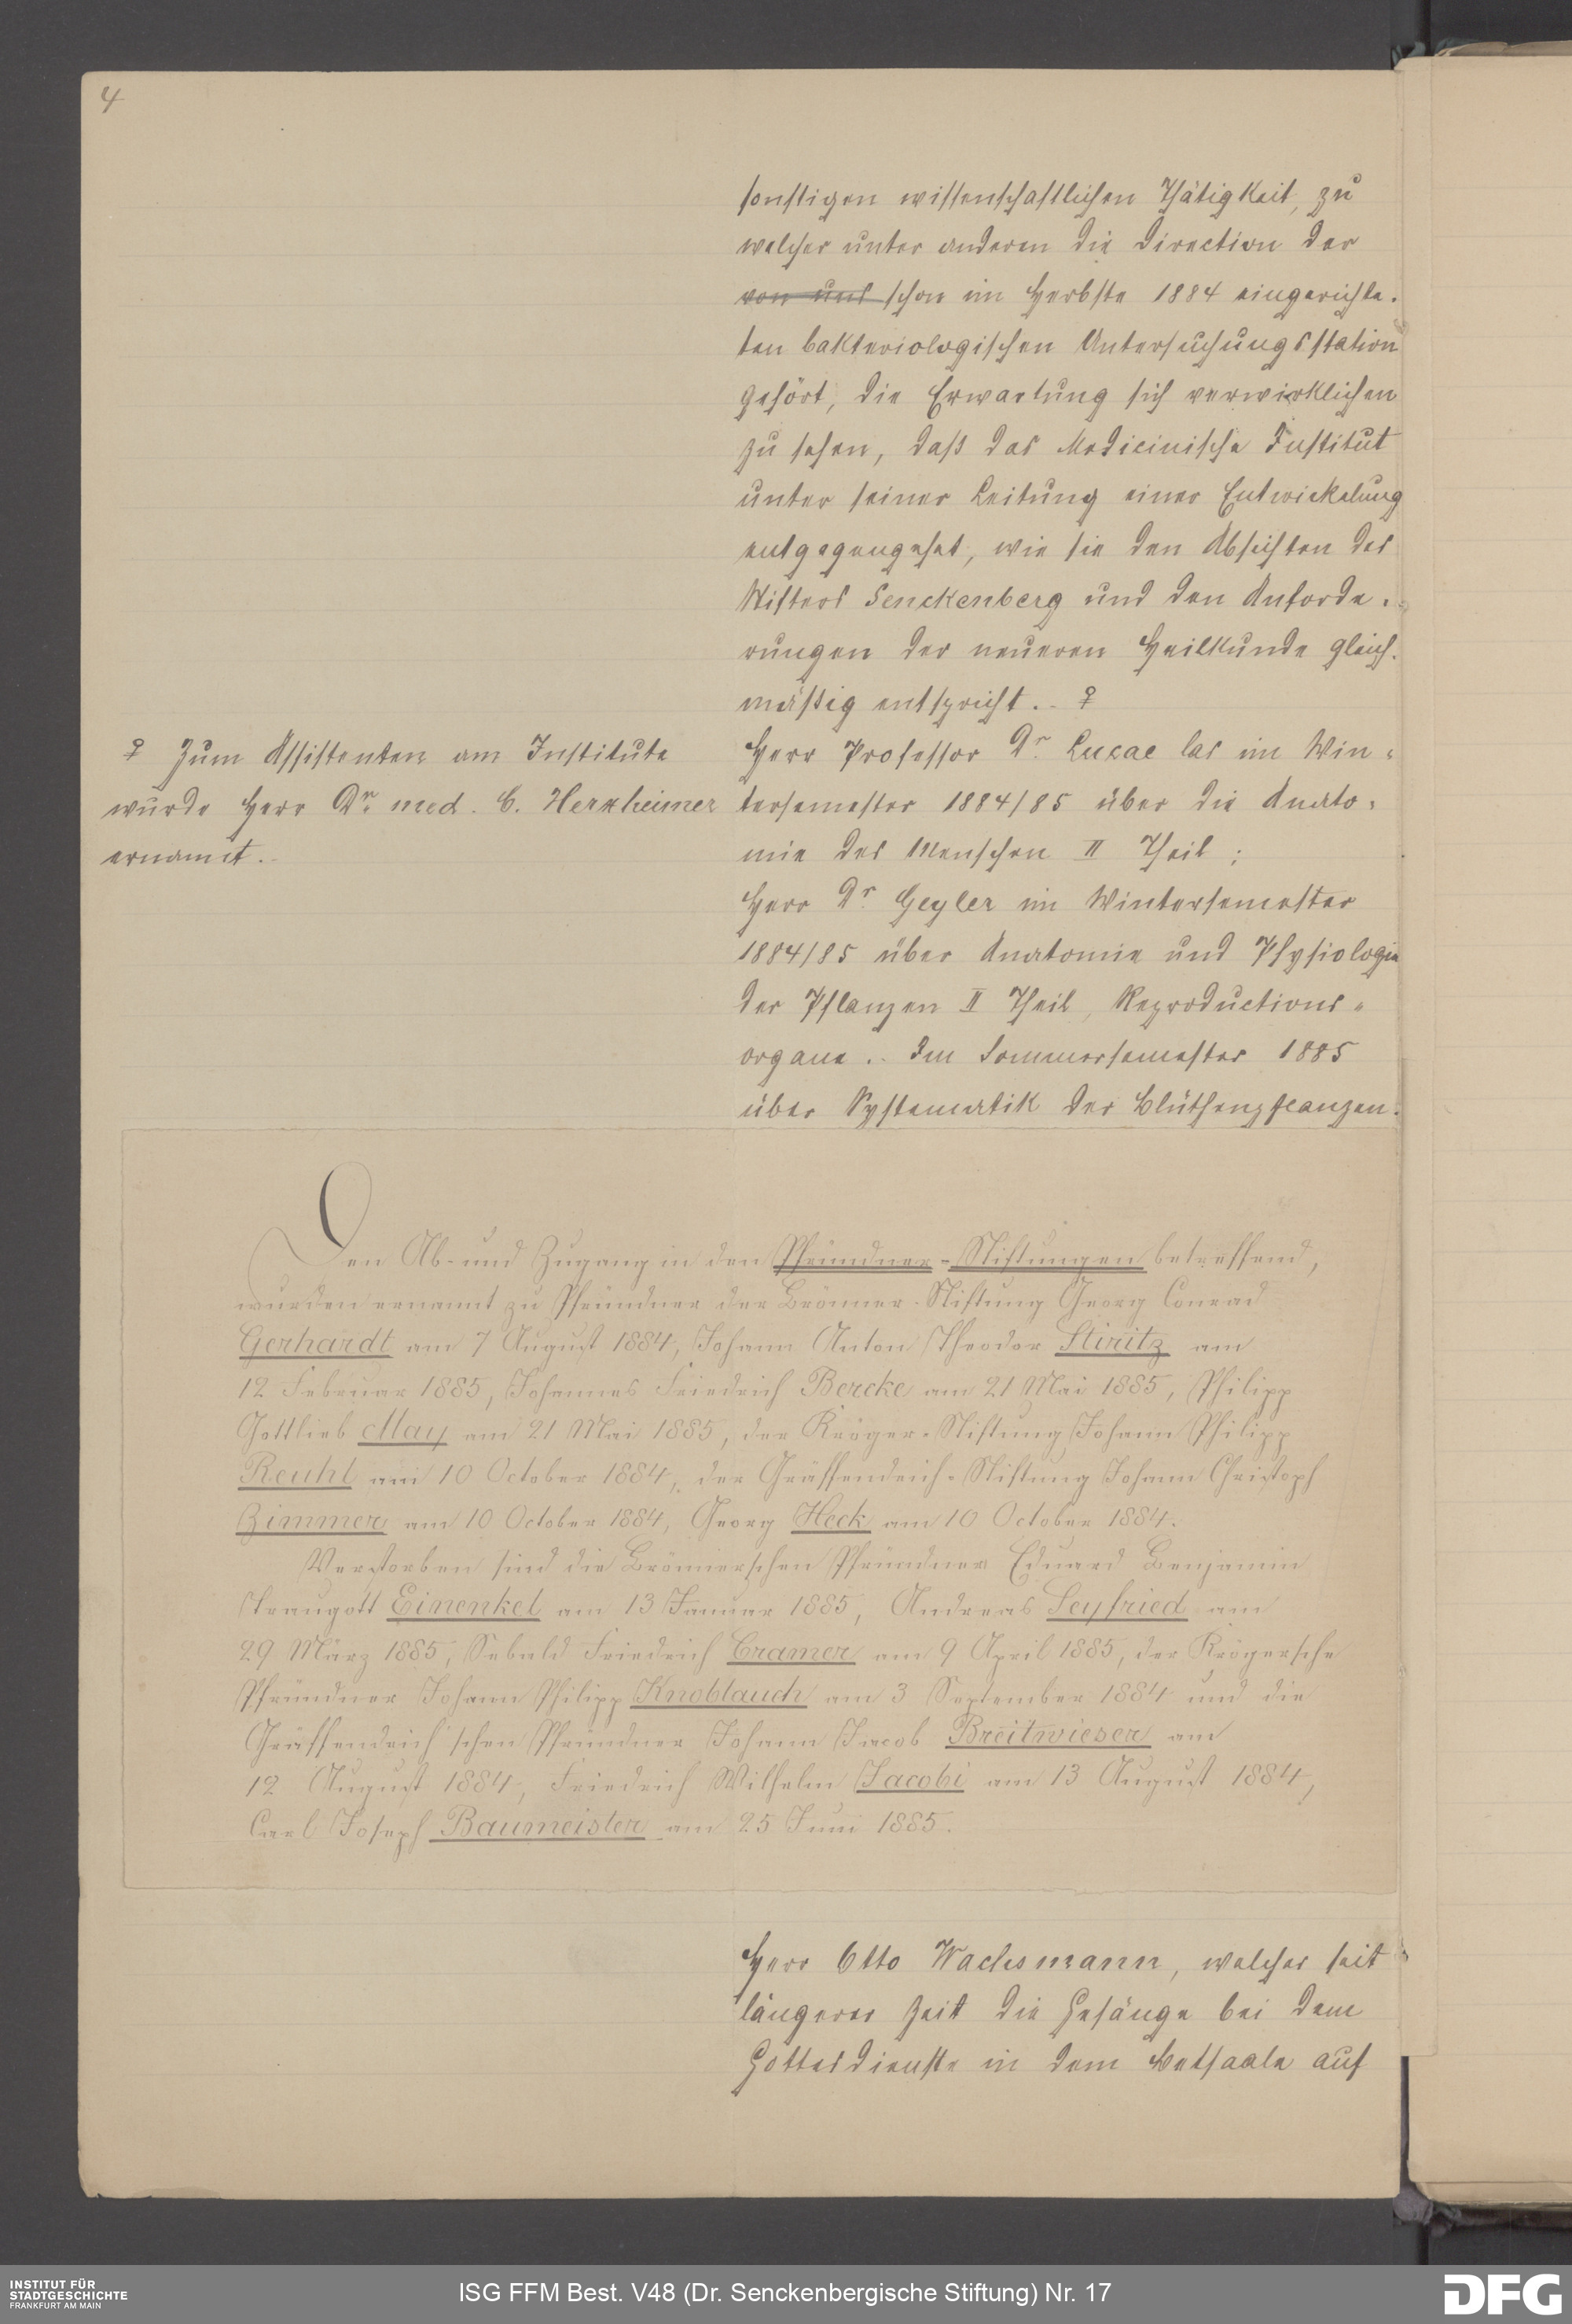 4
sonstigen wissenschaftlichen Thätigkeit, zu
welcher unter anderem die Direction der
von uns schon im Herbste 1884 eingerichte-
ten bakteriologischen Untersuchungsstation
gehört, die Erwartung sich verwirklichen
zu sehen, daß das Medicinische Institut
unter seiner Leitung einer Entwickelung
entgegengehet, wie sie den Absichten des
Stifters Senckenberg und den Anforde-
rungen der neueren Heilkunde gleich-
mäßig entspricht. ♀
♀ Zum Assistenten am Institute
wurde Herr Dr. med. C. Herxheimer
ernannt.
Herr Professor Dr. Lucae las im Win-
tersemester 1884/85 über die Anato-
mie des Menschen II Theil;
Herr Dr. Geyler im Wintersemester
1884/85 über Anatomie und Physiologie
der Pflanzen II Theil, Reproductions-
organe. Im Sommersemester 1885
über Systematik der Blüthenpflanzen.
Den Ab- und Zugang in den Pfründner-Stiftungen betreffend,
wurden ernannt zu Pfründner der Brönner-Stiftung Georg Conrad
Gerhardt am 7 August 1884, Johann Anton Theodor Stiritz am
12 Februar 1885, Johannes Friedrich Bercke am 21 Mai 1885, Philipp
Gottlieb May am 21 Mai 1885, der Kröger-Stiftung Johann Philipp
Reuhl am 10 October 1884, der Gräffendeich-Stiftung Johann Christoph
Zimmer am 10 October 1884, Georg Heck am 10 October 1884.
Verstorben sind die Brönnerschen Pfründner Eduard Benjamin
Traugott Einenkel am 13 Januar 1885, Andreas Seyfried am
29 März 1885, Sebald Friedrich Cramer am 9 April 1885, der Krögersche
Pfründner Johann Philipp Knoblauch am 3 September 1884 und die
Gräffendeich'schen Pfründner Johann Jacob Breitwieser am
12 August 1884, Friedrich Wilhelm Jacobi am 13 August 1884,
Carl Joseph Baumeister am 25 Juni 1885.
Herr Otto Wachsmann, welcher seit
längerer Zeit die Gesänge bei dem
Gottesdienste in dem Betsaale auf
INSTITUT FÜR
STADTGESCHICHTE
FRANKFURT AM MAIN
ISG FFM Best. V48 (Dr. Senckenbergische Stiftung) Nr. 17
DFG